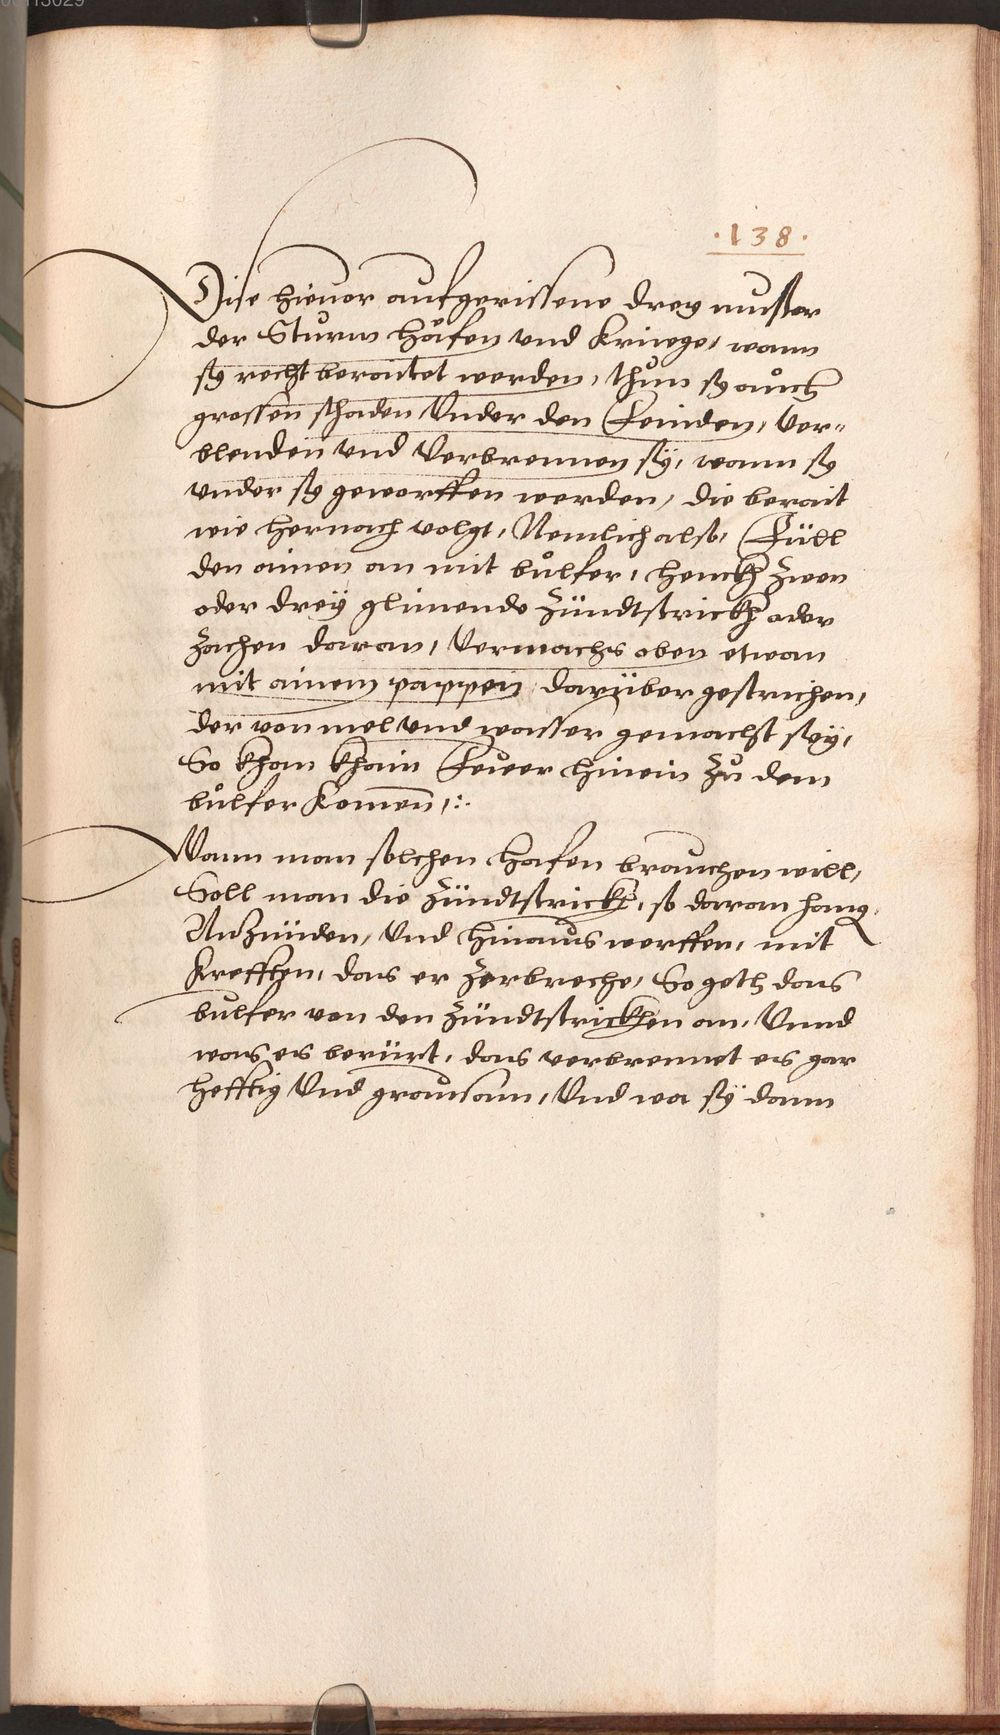 00113029
·138·
Dise hieuor aufgerissene drey muster
der Sturm häfen vnd Krieege, wann
sy recht beraitet werden, thun sy auch
grossen schaden Vnder den Feinden, Ver-
blenden vnd Verbrennen sÿ, wann sy
vnder sy geworffen werden, die berait
wie hernach volgt, Nemlich also, Füll
den ainen an mit bulfer, henckh zwen
oder dreÿ glimende Zündtstrickh oder
Zachen daran, Vermachs oben etwan
mit ainem pappen darÿber gestrichen,
der von mel vnd wasser gemacht seÿ,
So khan khain Feuer hinein Zu dem
bulfer Komen,:.
Wann man solchen hafen brauchen will,
Soll man die Zündtstrickh, so daran hang
Anzünden, Vnd hinaus werffen, mit
Krefften, das er Zerbreche, So geth das
bulfer von den Zündtstrickhen an, Vnnd
was es berürt, das verbrennet es gar
hefftig Vnd grausam, Vnd wa sÿ dann